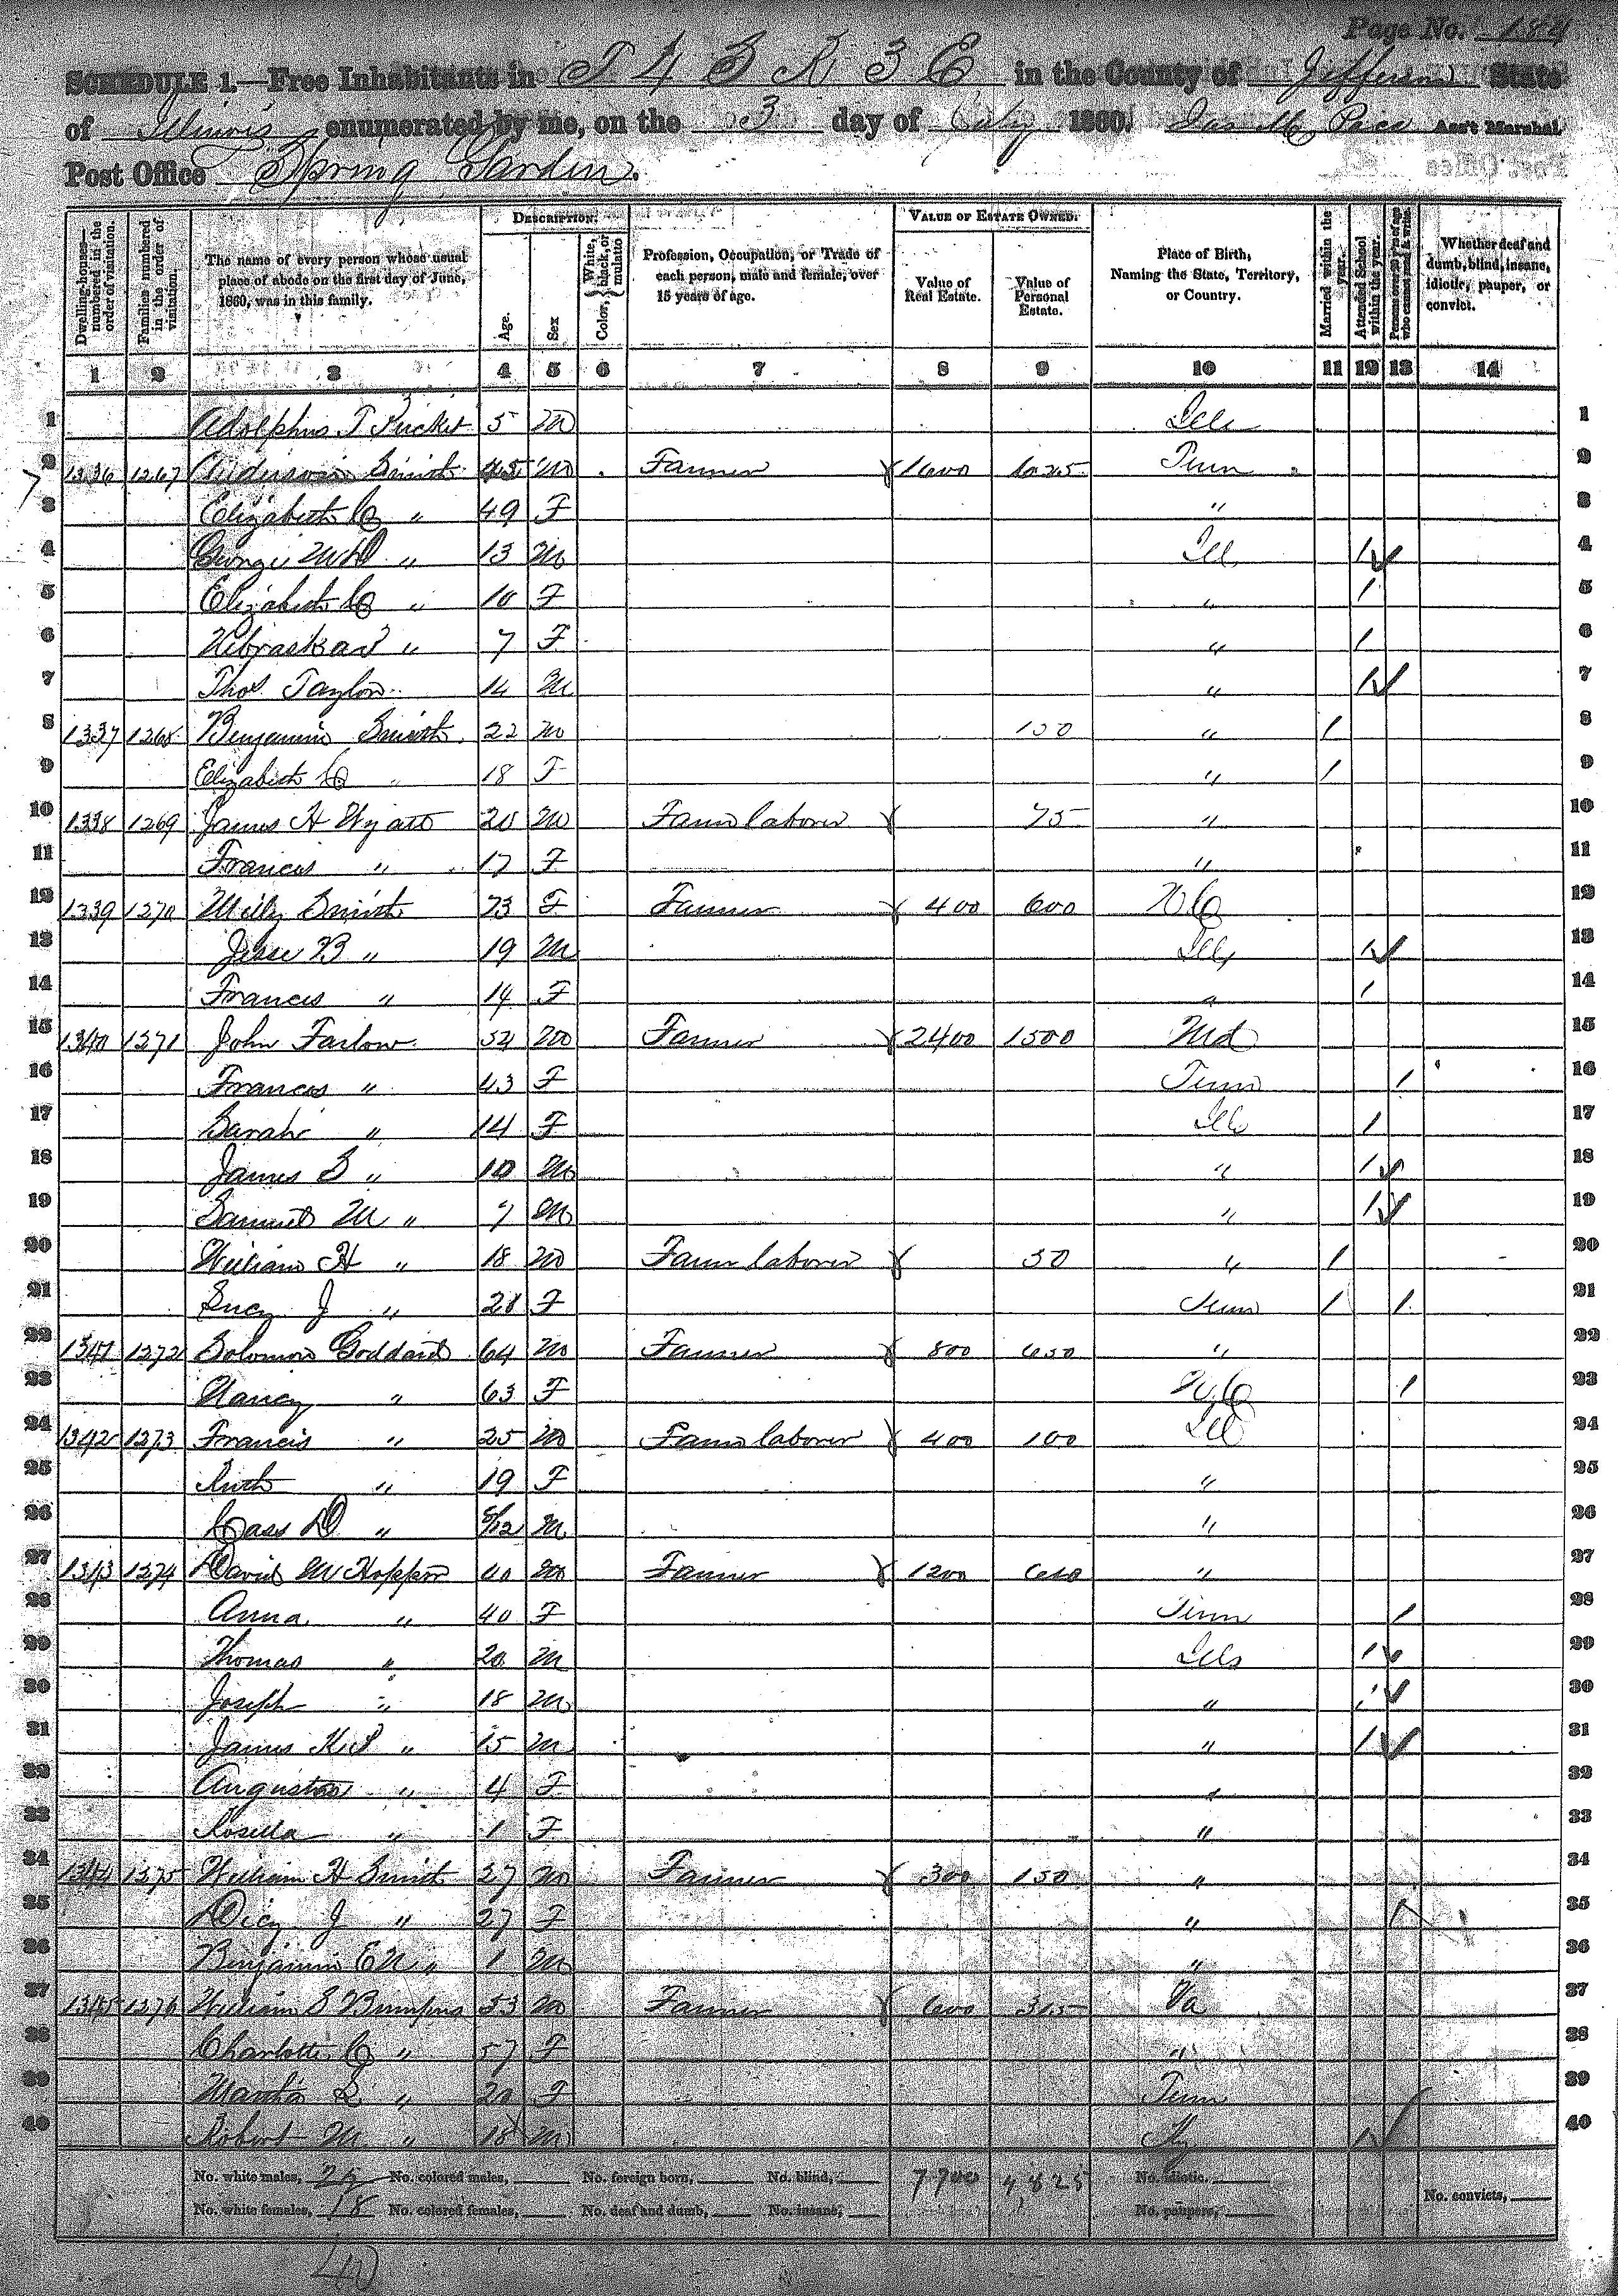 Page No. 184
SCHEDULE 1.—Free Inhabitants in T 4 S R 3 E in the County of Jefferson State
of Illinois enumerated by me, on the 3 day of July 1860. Jas M Pace Ass't Marshal.
Post Office Spring Garden.
Dwelling-houses—numbered in the order of visitation.
Families numbered in the order of visitation.
The name of every person whose usual place of abode on the first day of June, 1860, was in this family.
DESCRIPTION.
Age.
Sex
Color, White, black, or mulatto
Profession, Occupation, or Trade of each person, male and female, over 15 years of age.
VALUE OF ESTATE OWNED.
Value of Real Estate.
Value of Personal Estate.
Place of Birth, Naming the State, Territory, or Country.
Married within the year.
Attended School within the year.
Persons over 20 y'rs of age who cannot read & write.
Whether deaf and dumb, blind, insane, idiotic, pauper, or convict.
1 2 3 4 5 6 7 8 9 10 11 12 13 14
1 Adolphus T Pucket 5 M Ills 1
2 1336 1267 Anderson Smith 45 M Farmer 1600 1025 Tenn 2
3 Elizabeth C " 49 F " 3
4 George W D " 13 M Ill 1 4
5 Elizabeth C " 10 F " 1 5
6 Nebraska " 7 F " 1 6
7 Thos Taylor 14 M " 1 7
8 1337 1268 Benjamin Smith 22 M 150 " 1 8
9 Elizabeth C " 18 F " 1 9
10 1338 1269 James H Wyatt 20 M Farm laborer 75 " 10
11 Frances " 17 F " 11
12 1339 1270 Mily Smith 73 F Farmer 400 600 N C 12
13 Jesse B " 19 M Ills 1 13
14 Frances " 14 F " 1 14
15 1340 1271 John Farlow 52 M Farmer 2400 1500 Md 15
16 Frances " 43 F Tenn 1 16
17 Sarah " 14 F Ills 1 17
18 James S " 10 M " 1 18
19 Samuel M " 7 M " 1 19
20 William H " 18 M Farm laborer 50 " 1 20
21 Lucy J " 21 F Tenn 1 1 21
22 1341 1272 Solomon Goddard 64 M Farmer 800 650 " 22
23 Nancy " 63 F N.C 1 23
24 1342 1273 Francis " 25 M Farm laborer 400 100 Ill 24
25 Ruth " 19 F " 25
26 Cass D " 5/12 M " 26
27 1343 1274 David M Hopper 40 M Farmer 1200 " 27
28 Anna " 40 F Tenn 1 28
29 Thomas " 20 M Ills 1 29
30 Joseph " 18 M " 1 30
31 James K P " 15 M " 1 31
32 Augusta " 4 F " 32
33 Rosella " 1 F " 33
34 1344 1275 William H Smith 27 M Farmer 300 150 " 34
35 Dicy J " 27 F " 1 35
36 Benjamin E N " 1 M " 36
37 1345 1276 William S Bumpus 53 M Farmer 600 315 Va 37
38 Charlotte C " 57 F " 38
39 Martha L " 20 F Tenn 39
40 Robert M " 18 M Ky 1 40
No. white males, 22 No. colored males, No. foreign born, No. blind, 7700 4,825 No. idiotic,
No. white females, 18 No. colored females, No. deaf and dumb, No. insane, No. paupers, No. convicts,
40